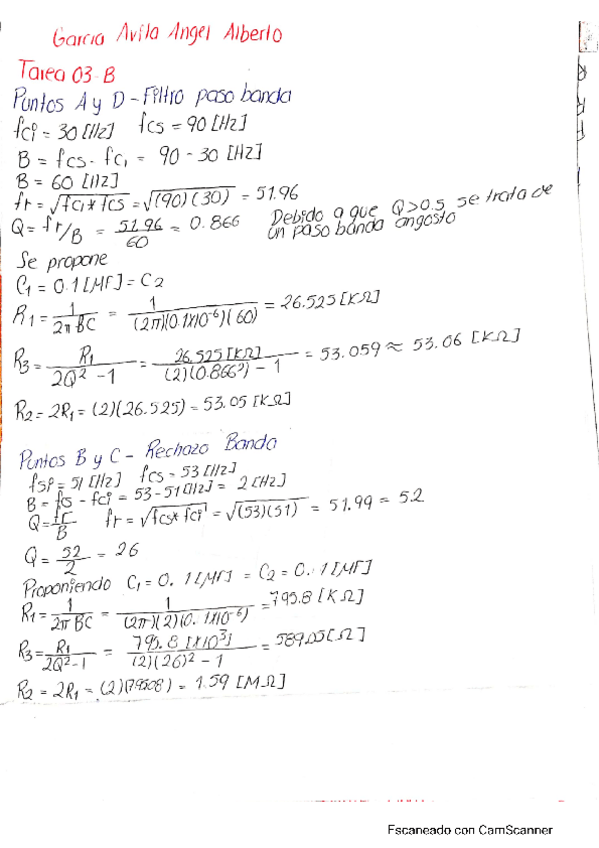 García Avila Angel Alberto
Tarea 03-B
Puntos A y D - Filtro paso banda
fci = 30 [Hz] fcs = 90 [Hz]
B = fcs - fci = 90 - 30 [Hz]
B = 60 [Hz]
fr = √fci * fcs = √(90)(30) = 51.96
Q = fr/B = 51.96/60 = 0.866 Debido a que Q>0.5 se trata de un paso banda angosto
Se propone
C1 = 0.1 [MF] = C2
R1 = 1/2π BC = 1/(2π)(0.1x10^-6)(60) = 26.525 [KΩ]
R3 = R1/2Q² - 1 = 26.525 [KΩ]/(2)(0.866²) - 1 = 53.059 ≈ 53.06 [KΩ]
R2 = 2R1 = (2)(26.525) = 53.05 [KΩ]
Puntos B y C - Rechazo Banda
fsi = 51 [Hz] fcs - 53 [Hz]
B = fs - fci = 53 - 51 [Hz] = 2 [Hz]
Q = fr/B fr = √fcs * fci = √(53)(51) = 51.99 = 52
Q = 52/2 = 26
Proponiendo C1 = 0.1 [MF] = C2 = 0.1 [MF]
R1 = 1/2π BC = 1/(2π)(2)(0.1x10^-6) = 795.8 [KΩ]
R3 = R1/2Q² - 1 = 795.8 [x10³]/(2)(26)² - 1 = 589.05 [Ω]
R2 = 2R1 = (2)(79508) = 1.59 [MΩ]
Escaneado con CamScanner